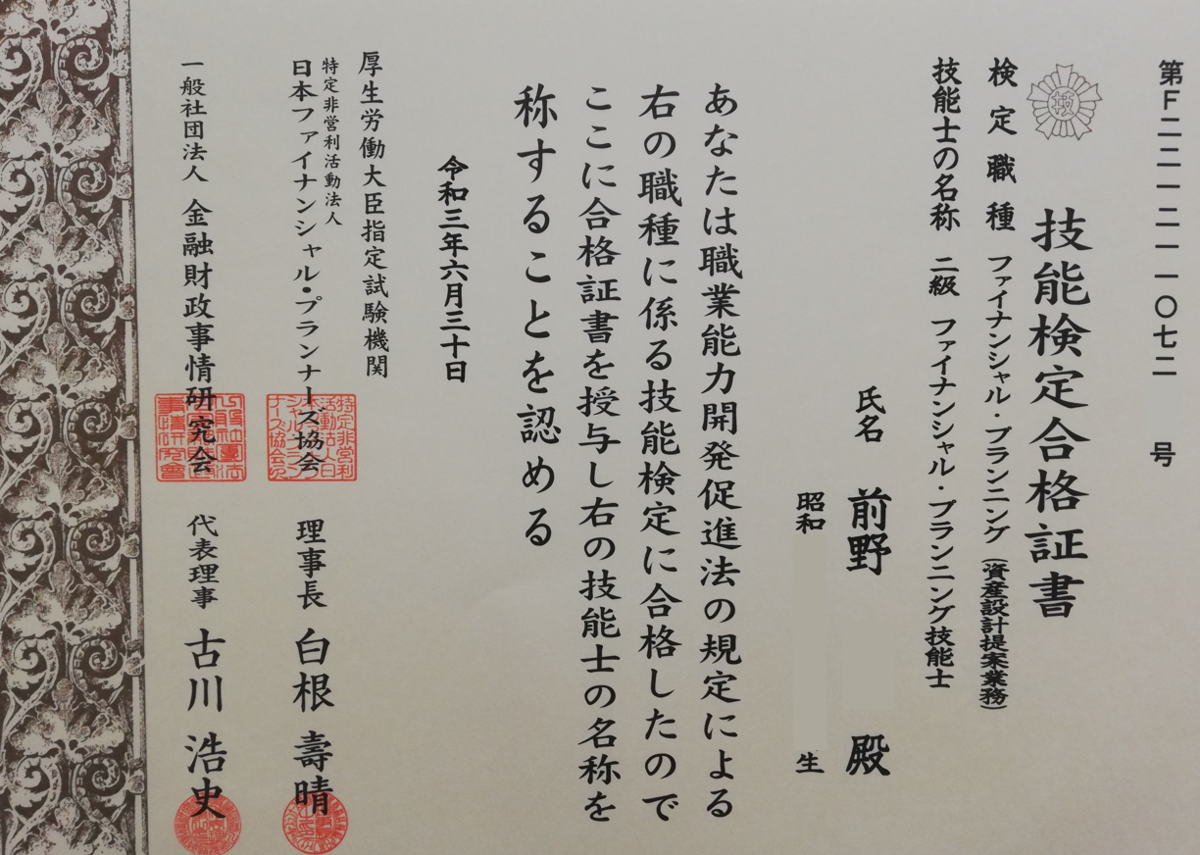 第Ｆ二二一二一一〇七二 号
技能検定合格証書
検定職種 ファイナンシャル・プランニング（資産設計提案業務）
技能士の名称 二級 ファイナンシャル・プランニング技能士
氏名 前野 殿
昭和 生
あなたは職業能力開発促進法の規定による
右の職種に係る技能検定に合格したので
ここに合格証書を授与し右の技能士の名称を
称することを認める
令和三年六月三十日
厚生労働大臣指定試験機関
特定非営利活動法人
日本ファイナンシャル・プランナーズ協会 理事長 白根 壽晴
一般社団法人 金融財政事情研究会 代表理事 古川 浩史